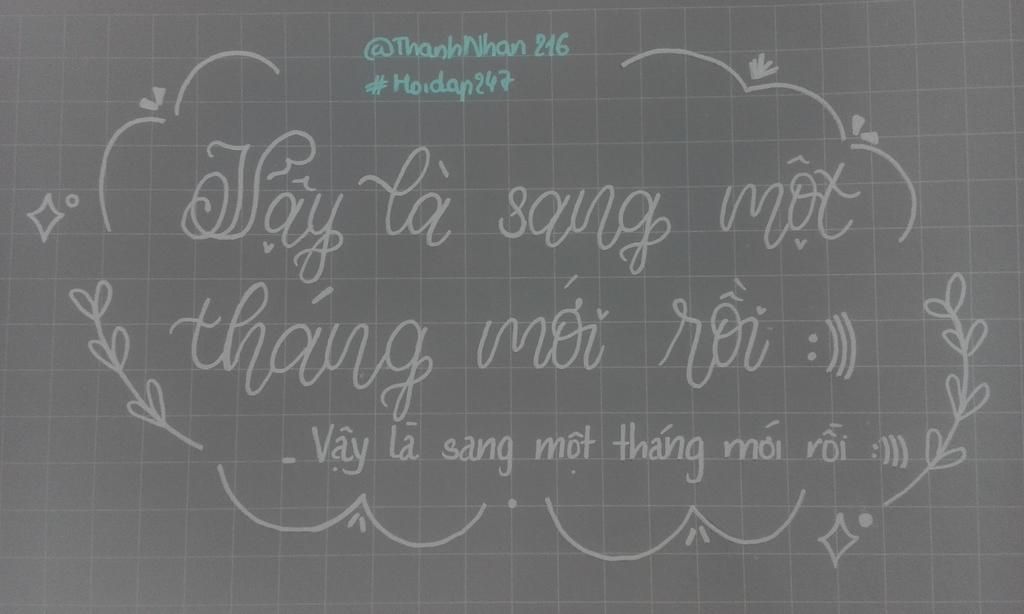 @ThanhNhan216
#Hoidap247
Vậy là sang một
tháng mới rồi :)))
- Vậy là sang một tháng mới rồi :)))